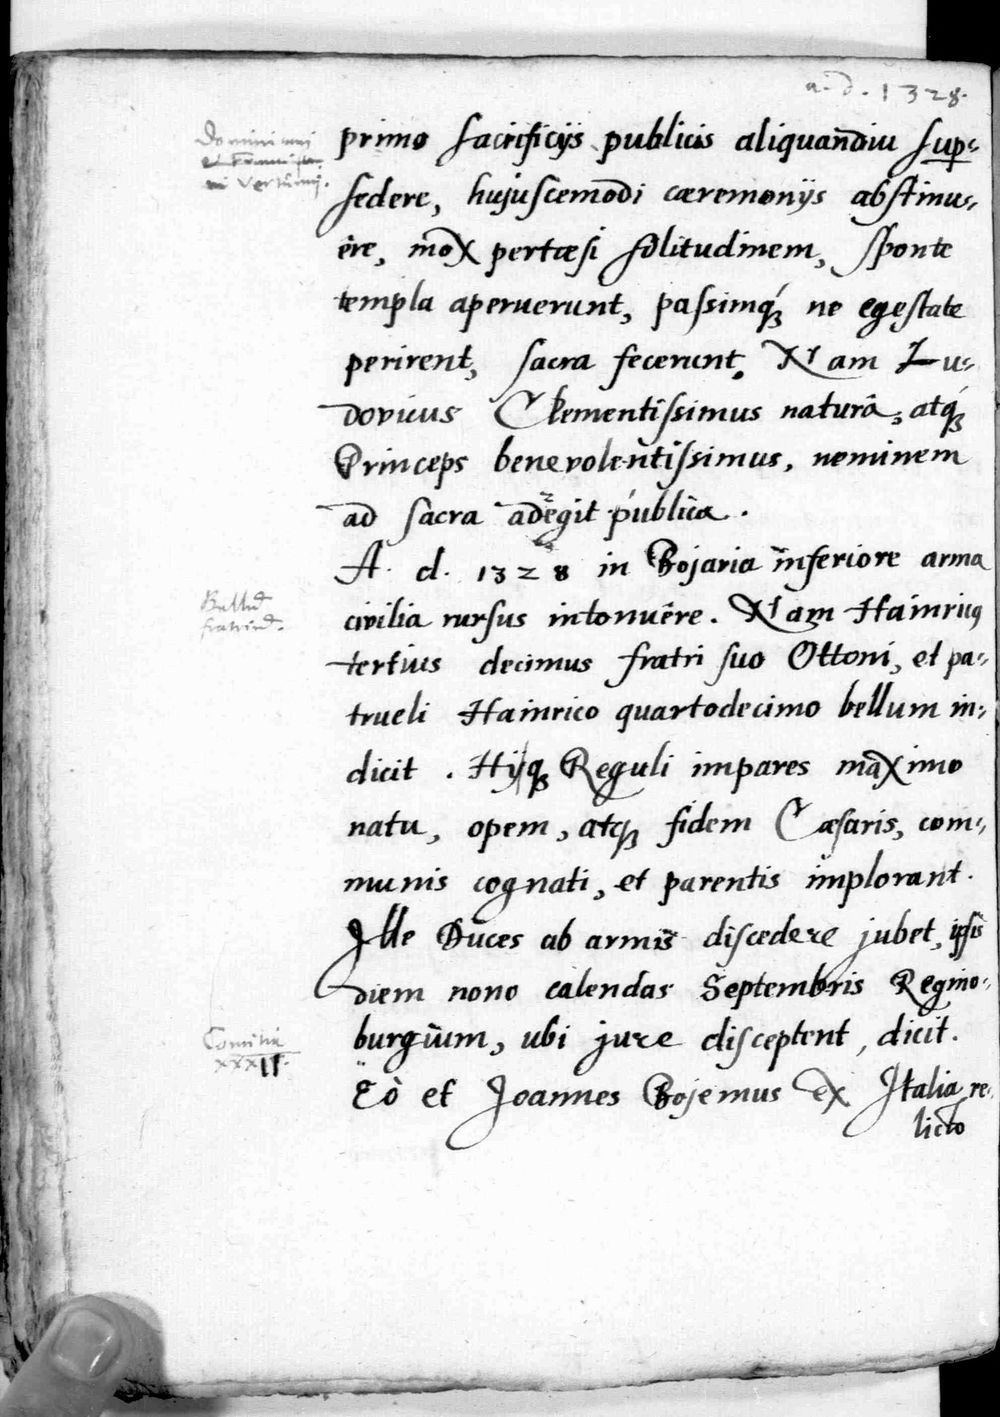 a. d. 1328.
Dominicani
et
Vertūnij.
primo sacrificijs publicis aliquandiu sup-
sedere, hujuscemodi cæremonijs abstinu-
ēre, mox pertæsi solitudinem, sponte
templa aperuerunt, passimq́ꝫ ne egestate
perirent, sacra fecerunt. Nam Lu-
dovicus Clementissimus naturâ, atq́ꝫ
Princeps benevolentissimus, neminem
ad sacra adegit publica.
A. d. 1328 in Bojaria inferiore arma
Bellū
fratrū.
civilia rursus intonuêre. Nam Hainricus
tertius decimus fratri suo Ottoni, et pa-
trueli Hainrico quartodecimo bellum in-
dicit. Hijqꝫ Reguli impares maximo
natu, opem, atqꝫ fidem Cæsaris, com-
munis cognati, et parentis implorant.
Ille Duces ab armis discedere jubet, ipsis
diem nono calendas Septembris Regino-
Comitia
XXXII.
burgium, ubi jure disceptent, dicit.
Eò et Joannes Bojemus ex Italia re-
licto